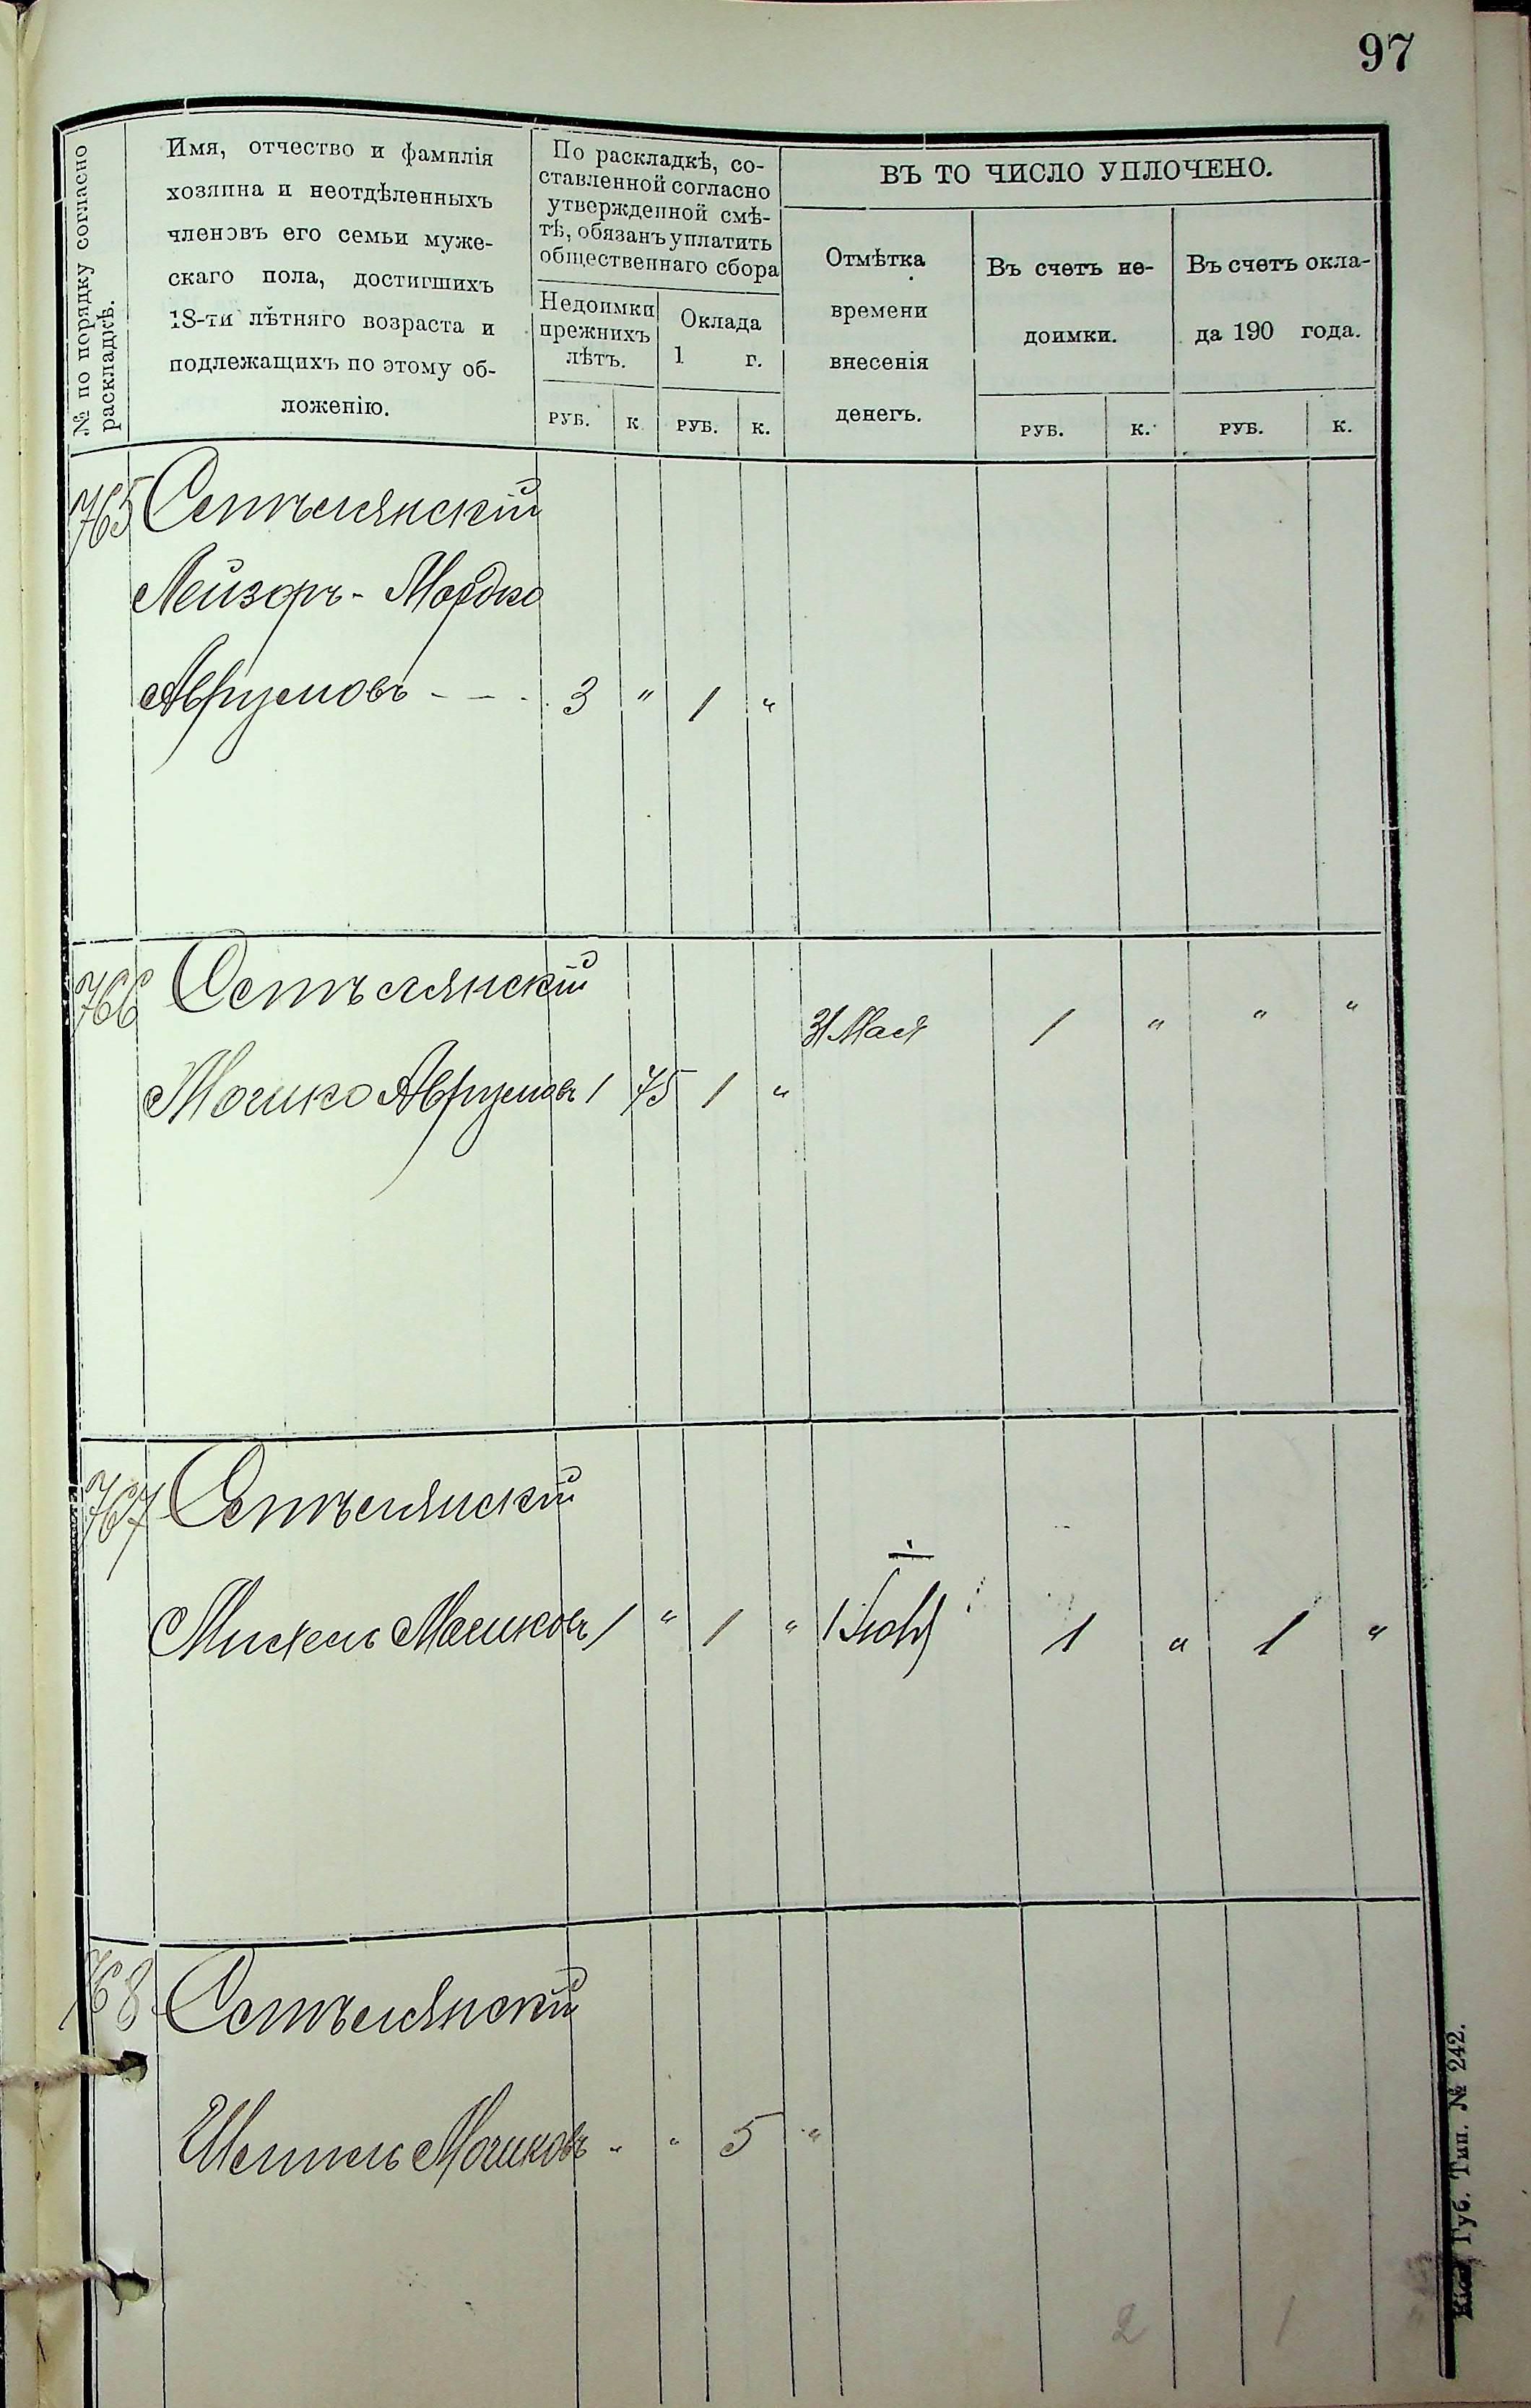 97
№ по порядку согласно
раскладкѣ.
Имя, отчество и фамилія
хозяина и неотдѣленныхъ
членовъ его семьи муже-
скаго пола, достигшихъ
18-ти лѣтняго возраста и
подлежащихъ по этому об-
ложенію.
По раскладкѣ, со-
ставленной согласно
утвержденной смѣ-
тѣ, обязанъ уплатить
общественнаго сбора
Недоимки
прежнихъ
лѣтъ.
Оклада
1 г.
РУБ. К РУБ. К.
ВЪ ТО ЧИСЛО УПЛОЧЕНО.
Отмѣтка
времени
внесенія
денегъ.
Въ счетъ не-
доимки.
Въ счетъ окла-
да 190 года.
РУБ. К. РУБ. К.
765
Лейзоръ - Мордко
Аврумовъ - - - 3 " 1 "
766
31 Мая 1 " " "
Мошко Аврумовъ 1 75 1 "
767
Мошковъ 1 " 1 " 1 1 " 1 "
768
Мошковъ " " 5 "
2 1
Губ. Тип. № 242.